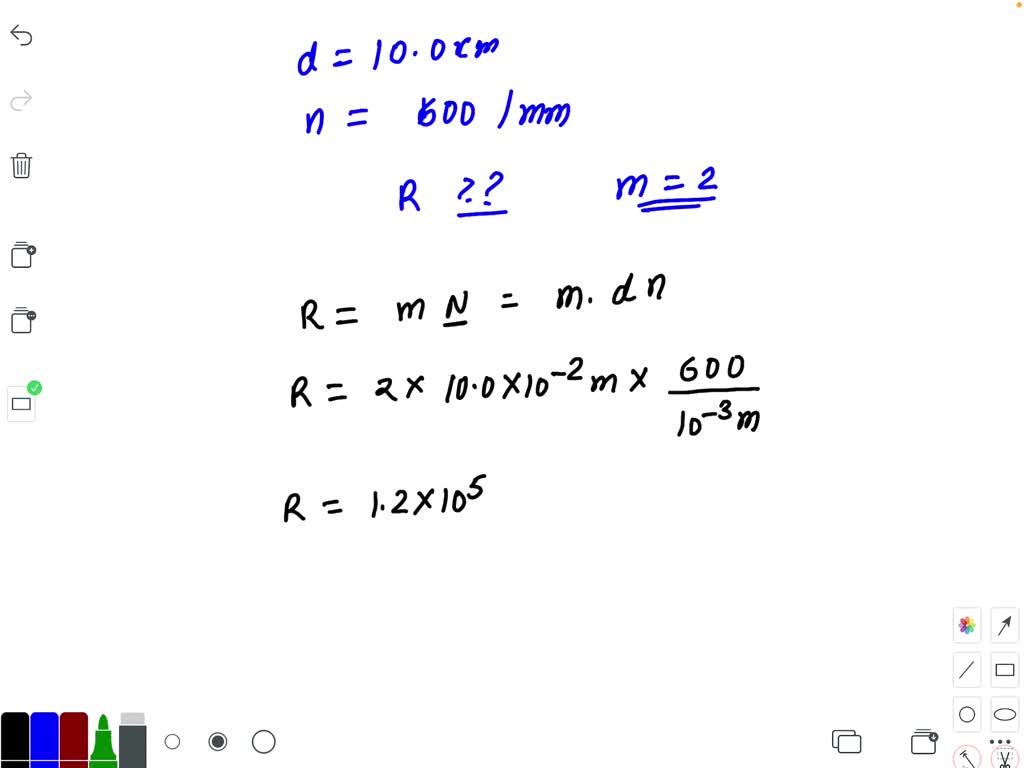 d = 10.0 cm
n = 600 /mm
R ?? m = 2
R = m N = m. d n
R = 2 × 10.0 × 10⁻² m × 600 / 10⁻³ m
R = 1.2 × 10⁵